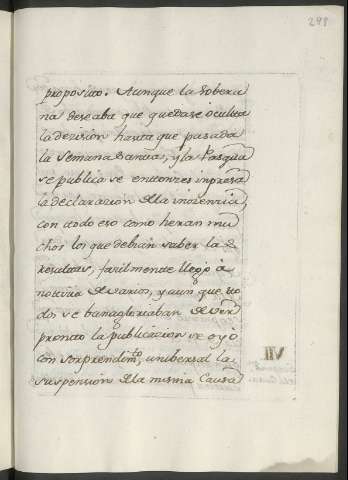 298
proposito. Aunque la Sobera
na deseaba que quedase oculta
la dezision hasta que pasada
la Semana Santa, y la Pasqua
se publicase entonzes inpresa
la declarazion de la inozenzia,
con todo eso como heran mu
chos los que debian saber la
resulta, fazilmente llego à
notizia de varios, y aunque to
dos se banagloriaban de ver
pronto la publicacion se oyò
con sorprendim.to unibersal la
suspension de la misma Causa
VII